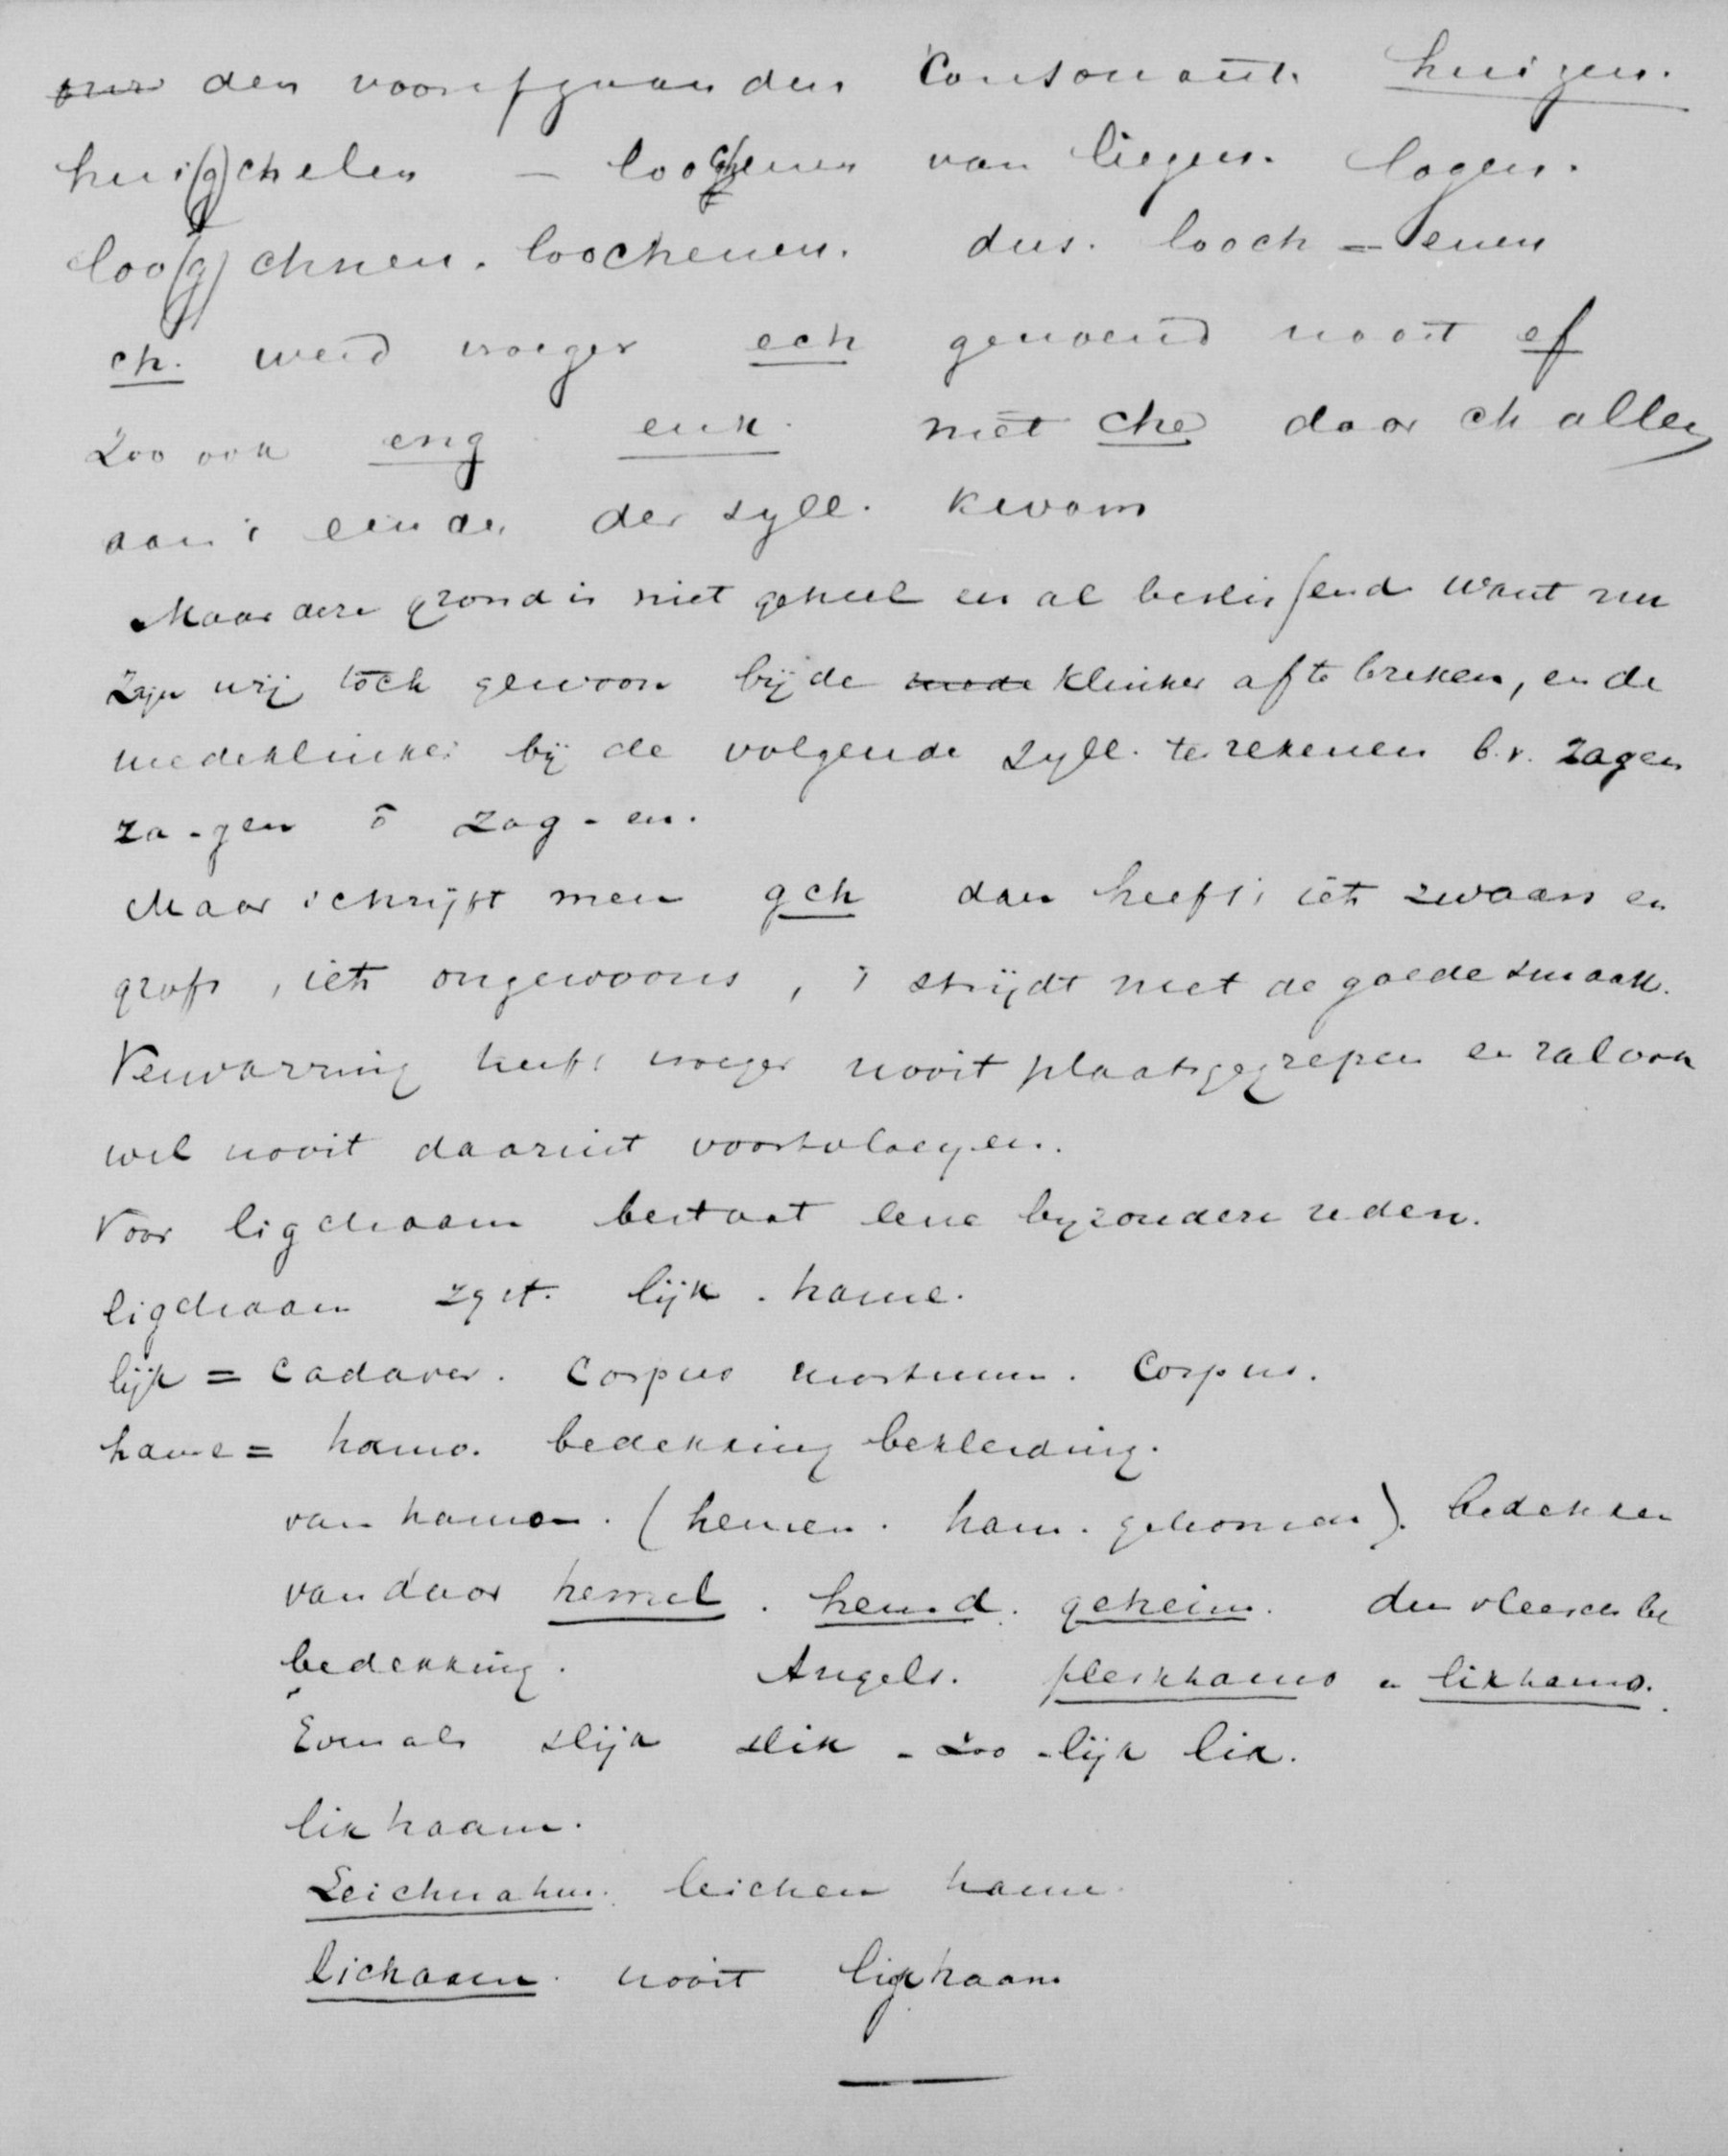 den voorafgaanden Consonant. huigen.
hui(g)chelen – loochenen van liegen. logen.
loo(g)chnen. loochenen. dus. looch=enen
ch. werd vroeger ech genoemd nooit ef
Zoo ook eng enk. niet che daar ch alleen
aan 't einde der syll. kwam
Maar deze grond is niet geheel en al beslissend want nu
zijn wij toch gewoon bij de mede klinker af te breken, en de
medeklinker bij de volgende syll. te rekenen b.v. zagen
za-gen ō zag-en.
Maar schrijft men gch dan heeft 't iets zwaars en
grofs, iets ongewoons, 't strijdt met de goede smaak.
Verwarring heeft vroeger nooit plaatsgegrepen en zal ook
wel nooit daaruit voortvloeyen.
Voor ligchaam bestaat eene byzondere reden.
ligchaam zgt. lijk. hame.
lijk = cadaver. Corpus mortuum. Corpus.
hame = hamo. bedekking bekleeding.
van haman. (hemen. ham. gehomen). bedekken
vandaar hemel. hemd. geheim. den vleesche
bedekking. Angels. fleskhamo en likhamo.
Evenals slijk slik – zoo – lijk lik.
likhaam.
Leichnahm. leichen hame.
lichaam. nooit ligchaam